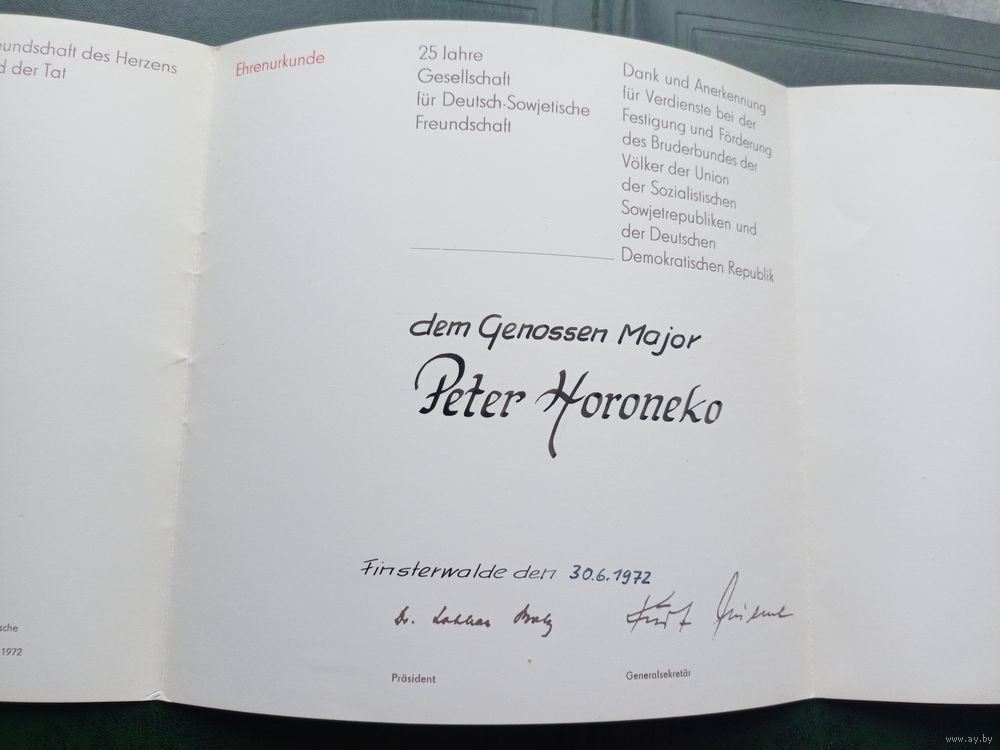 eundschaft des Herzens
d der Tat
Ehrenurkunde
25 Jahre
Gesellschaft
für Deutsch-Sowjetische
Freundschaft
Dank und Anerkennung
für Verdienste bei der
Festigung und Förderung
des Bruderbundes der
Völker der Union
der Sozialistischen
Sowjetrepubliken und
der Deutschen
Demokratischen Republik
dem Genossen Major
Peter Horoneko
Finsterwalde den 30.6.1972
Dr. Lothar Bolz
Kurt
Präsident
Generalsekretär
sche
1972
www.ay.by